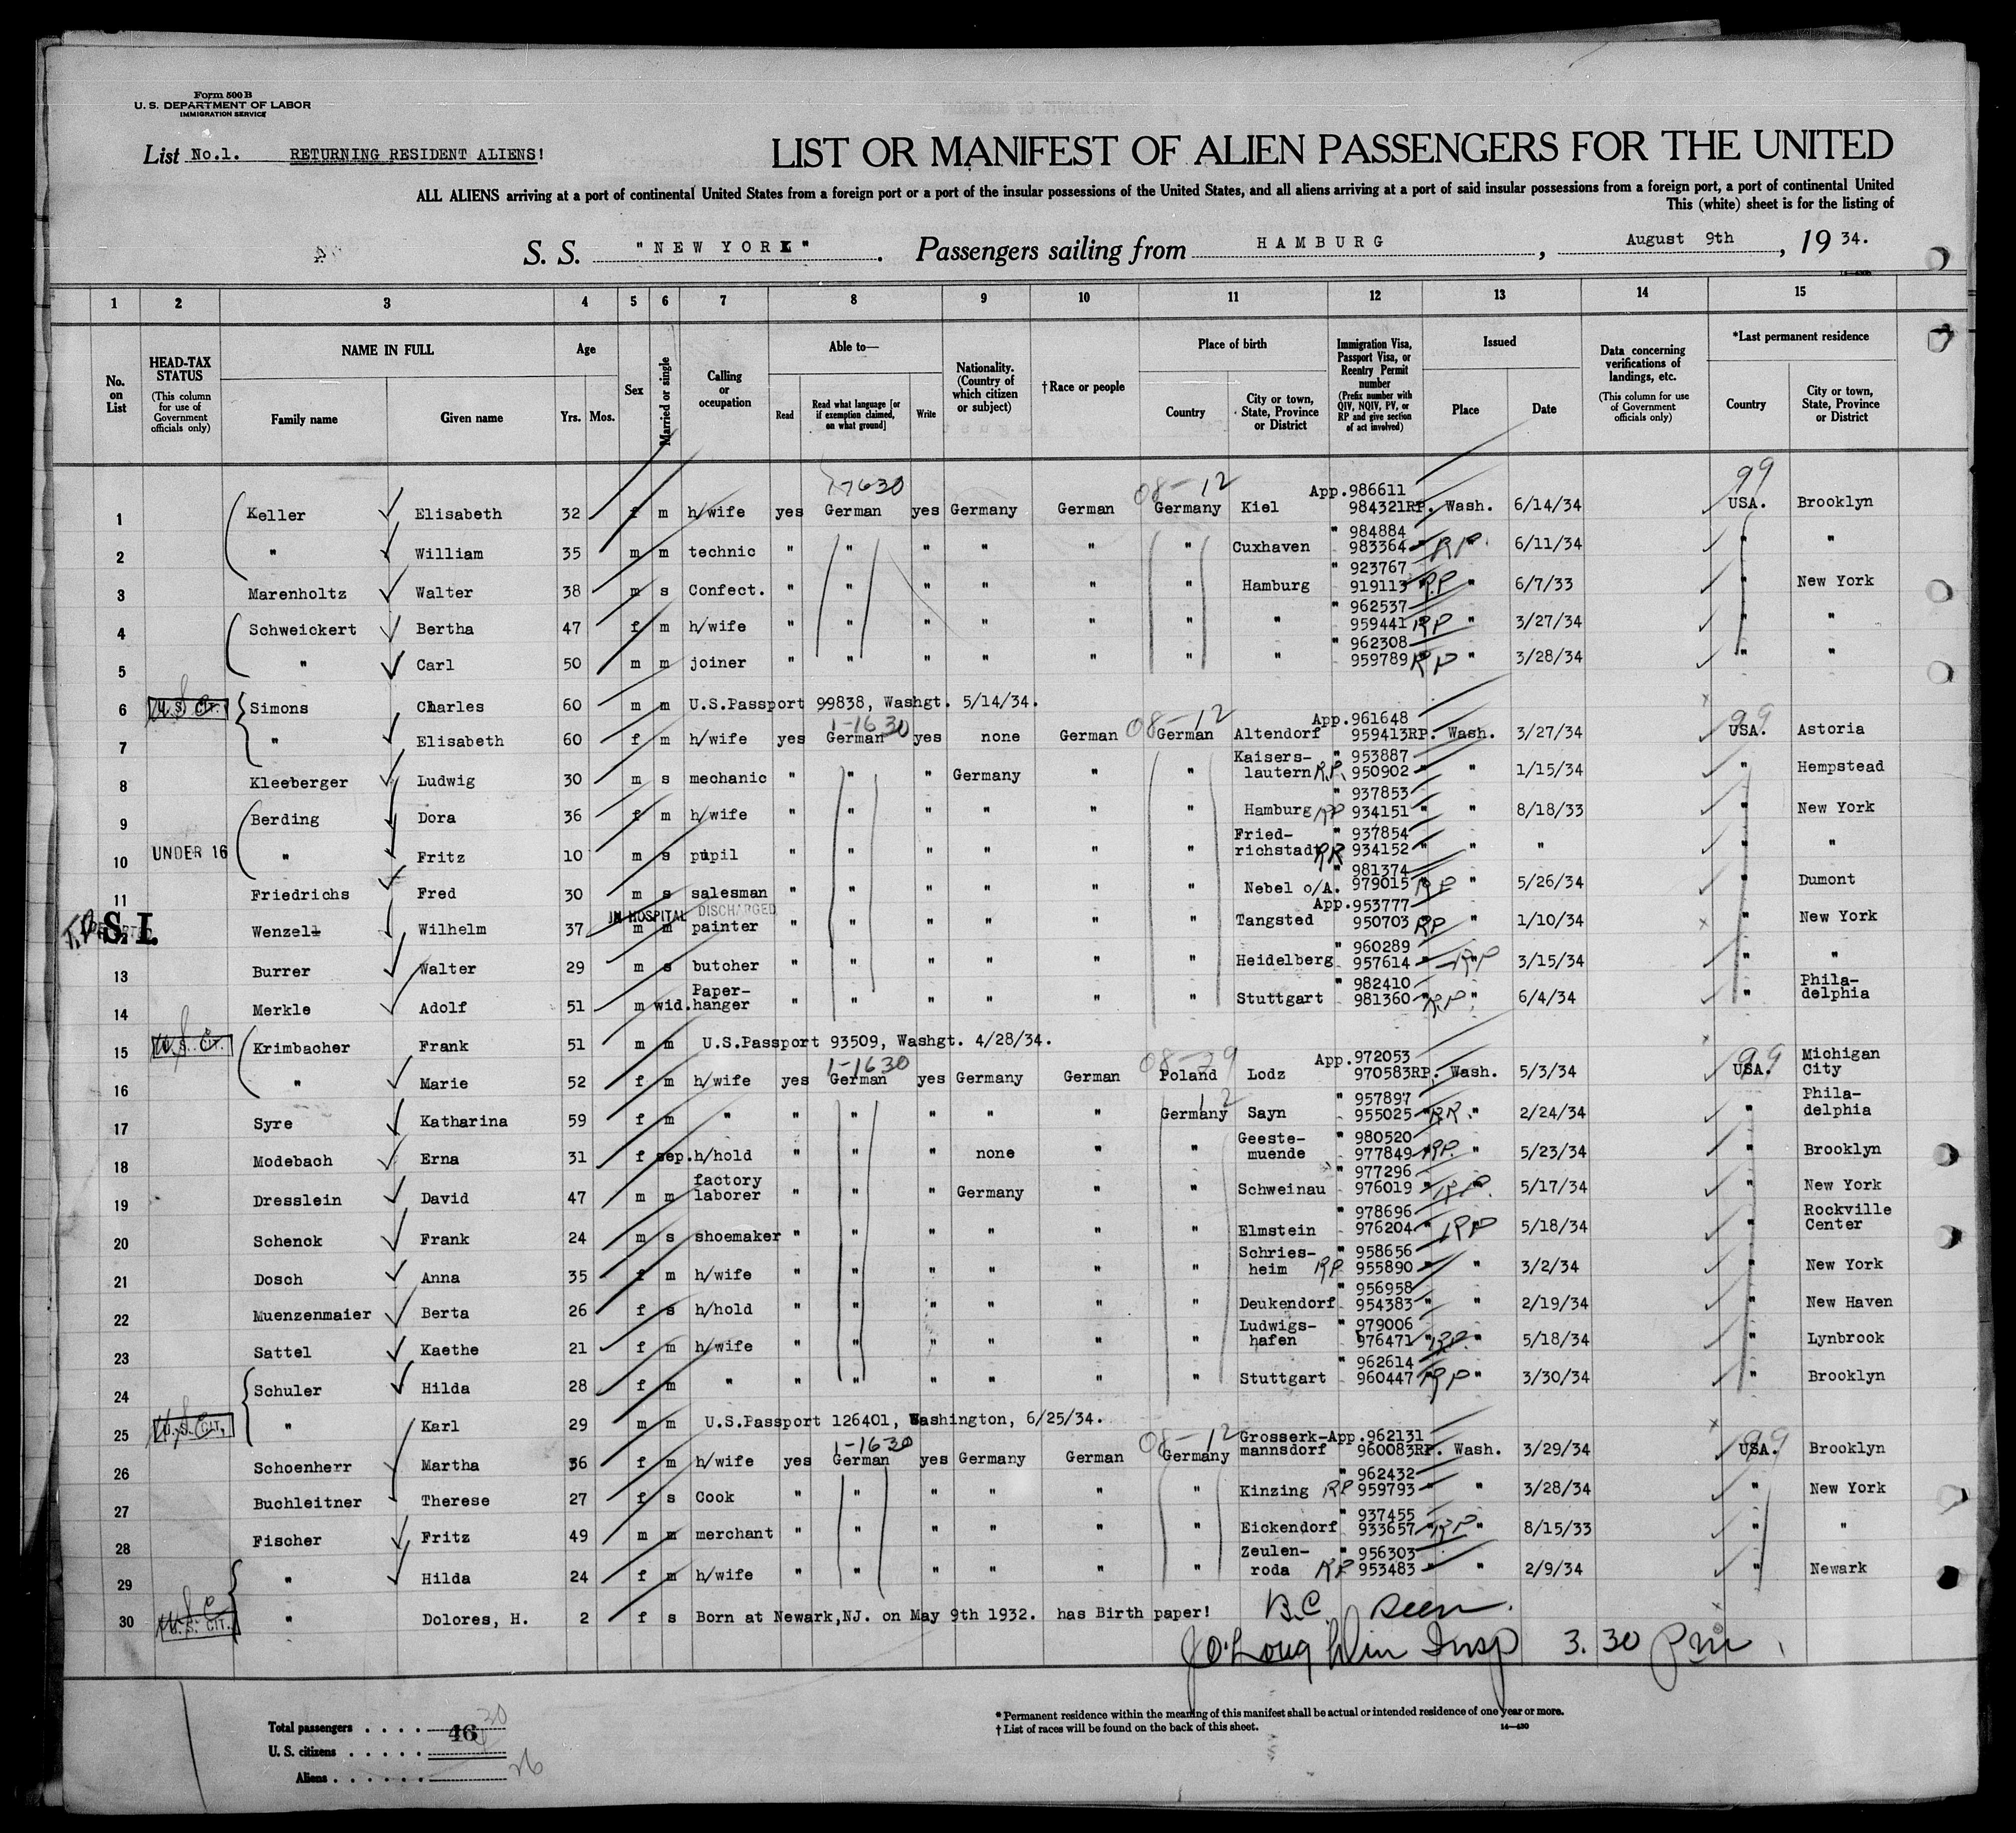 Form 500 B
U. S. DEPARTMENT OF LABOR
IMMIGRATION SERVICE
List No.1. RETURNING RESIDENT ALIENS!
LIST OR MANIFEST OF ALIEN PASSENGERS FOR THE UNITED
ALL ALIENS arriving at a port of continental United States from a foreign port or a port of the insular possessions of the United States, and all aliens arriving at a port of said insular possessions from a foreign port, a port of continental United
This (white) sheet is for the listing of
S. S. "NEW YORK". Passengers sailing from HAMBURG, August 9th, 19 34.
1 2 3 4 5 6 7 8 9 10 11 12 13 14 15
No. on List
HEAD-TAX STATUS
(This column for use of Government officials only)
NAME IN FULL
Family name Given name
Age
Yrs. Mos.
Sex
Married or single
Calling or occupation
Able to—
Read
Read what language [or if exemption claimed, on what ground]
Write
Nationality. (Country of which citizen or subject)
† Race or people
Place of birth
Country
City or town, State, Province or District
Immigration Visa, Passport Visa, or Reentry Permit number
(Prefix number with QIV, NQIV, PV, or RP and give section of act involved)
Issued
Place Date
Data concerning verifications of landings, etc.
(This column for use of Government officials only)
*Last permanent residence
Country
City or town, State, Province or District
1-1630 08-12 App.986611 99
1 Keller Elisabeth 32 f m h/wife yes German yes Germany German Germany Kiel 984321RP. Wash. 6/14/34 USA. Brooklyn
" 984884
2 " William 35 m m technic " " " " " " Cuxhaven 983364 " RP " 6/11/34 " "
" 923767
3 Marenholtz Walter 38 m s Confect. " " " " " " Hamburg 919113 " RP " 6/7/33 " New York
" 962537
4 Schweickert Bertha 47 f m h/wife " " " " " " " 959441 RP " 3/27/34 " "
" 962308
5 " Carl 50 m m joiner " " " " " " " 959789 RP " 3/28/34 " "
6 U.S. CIT. Simons Charles 60 m m U.S.Passport 99838, Washgt. 5/14/34.
1-1630 08-12 App.961648 99
7 " Elisabeth 60 f m h/wife yes German yes none German German Altendorf 959413RP. Wash. 3/27/34 USA. Astoria
Kaisers- " 953887
8 Kleeberger Ludwig 30 m s mechanic " " " Germany " " lautern R.P. 950902 " " 1/15/34 " Hempstead
" 937853
9 Berding Dora 36 f m h/wife " " " " " " Hamburg RP 934151 " " 8/18/33 " New York
Fried- " 937854
10 UNDER 16 " Fritz 10 m s pupil " " " " " " richstadt RP 934152 " " " " "
" 981374
11 Friedrichs Fred 30 m s salesman " " " " " " Nebel o/A. 979015 " RP " 5/26/34 " Dumont
IN HOSPITAL DISCHARGED App.953777
S.I. Wenzel Wilhelm 37 m m painter " " " " " " Tangsted 950703 RP " 1/10/34 " New York
" 960289
13 Burrer Walter 29 m s butcher " " " " " " Heidelberg 957614 " RP " 3/15/34 " "
Paper- " 982410 Phila-
14 Merkle Adolf 51 m wid. hanger " " " " " " Stuttgart 981360 " RP " 6/4/34 " delphia
15 U.S. CIT. Krimbacher Frank 51 m m U.S.Passport 93509, Washgt. 4/28/34.
1-1630 08-29 App.972053 99 Michigan
16 " Marie 52 f m h/wife yes German yes Germany German Poland Lodz 970583RP. Wash. 5/3/34 USA. City
12 " 957897 Phila-
17 Syre Katharina 59 f m " " " " " " Germany Sayn 955025 " RP. " 2/24/34 " delphia
Geeste- " 980520
18 Modebach Erna 31 f sep. h/hold " " " none " " muende 977849 " RP " 5/23/34 " Brooklyn
factory " 977296
19 Dresslein David 47 m m laborer " " " Germany " " Schweinau 976019 " RP. 5/17/34 " New York
" 978696 Rockville
20 Schenck Frank 24 m s shoemaker " " " " " " Elmstein 976204 " RP 5/18/34 " Center
Schries- " 958656
21 Dosch Anna 35 f m h/wife " " " " " " heim RP 955890 " " 3/2/34 " New York
" 956958
22 Muenzenmaier Berta 26 f s h/hold " " " " " " Deukendorf 954383 " " 2/19/34 " New Haven
Ludwigs- " 979006
23 Sattel Kaethe 21 f m h/wife " " " " " " hafen 976471 " RP. " 5/18/34 " Lynbrook
" 962614
24 Schuler Hilda 28 f m " " " " " " " Stuttgart 960447 " RP " 3/30/34 " Brooklyn
25 U.S. CIT. " Karl 29 m m U.S.Passport 126401, Washington, 6/25/34.
1-1630 08-12 Grosserk- App.962131 99
26 Schoenherr Martha 36 f m h/wife yes German yes Germany German Germany mannsdorf 960083RP. Wash. 3/29/34 USA. Brooklyn
" 962432
27 Buchleitner Therese 27 f s Cook " " " " " " Kinzing RP 959793 " " 3/28/34 " New York
" 937455
28 Fischer Fritz 49 m m merchant " " " " " " Eickendorf 933657 " RP " 8/15/33 " "
Zeulen- " 956303
29 " Hilda 24 f m h/wife " " " " " " roda RP 953483 " " 2/9/34 " Newark
30 U.S. CIT. " Dolores, H. 2 f s Born at Newark,NJ. on May 9th 1932. has Birth paper! B.C. Seen.
J O'Loughlin Insp 3.30 pm
Total passengers . . . . 46 30
U. S. citizens . . . . . 4
Aliens . . . . . . 26
* Permanent residence within the meaning of this manifest shall be actual or intended residence of one year or more.
† List of races will be found on the back of this sheet. 14—430